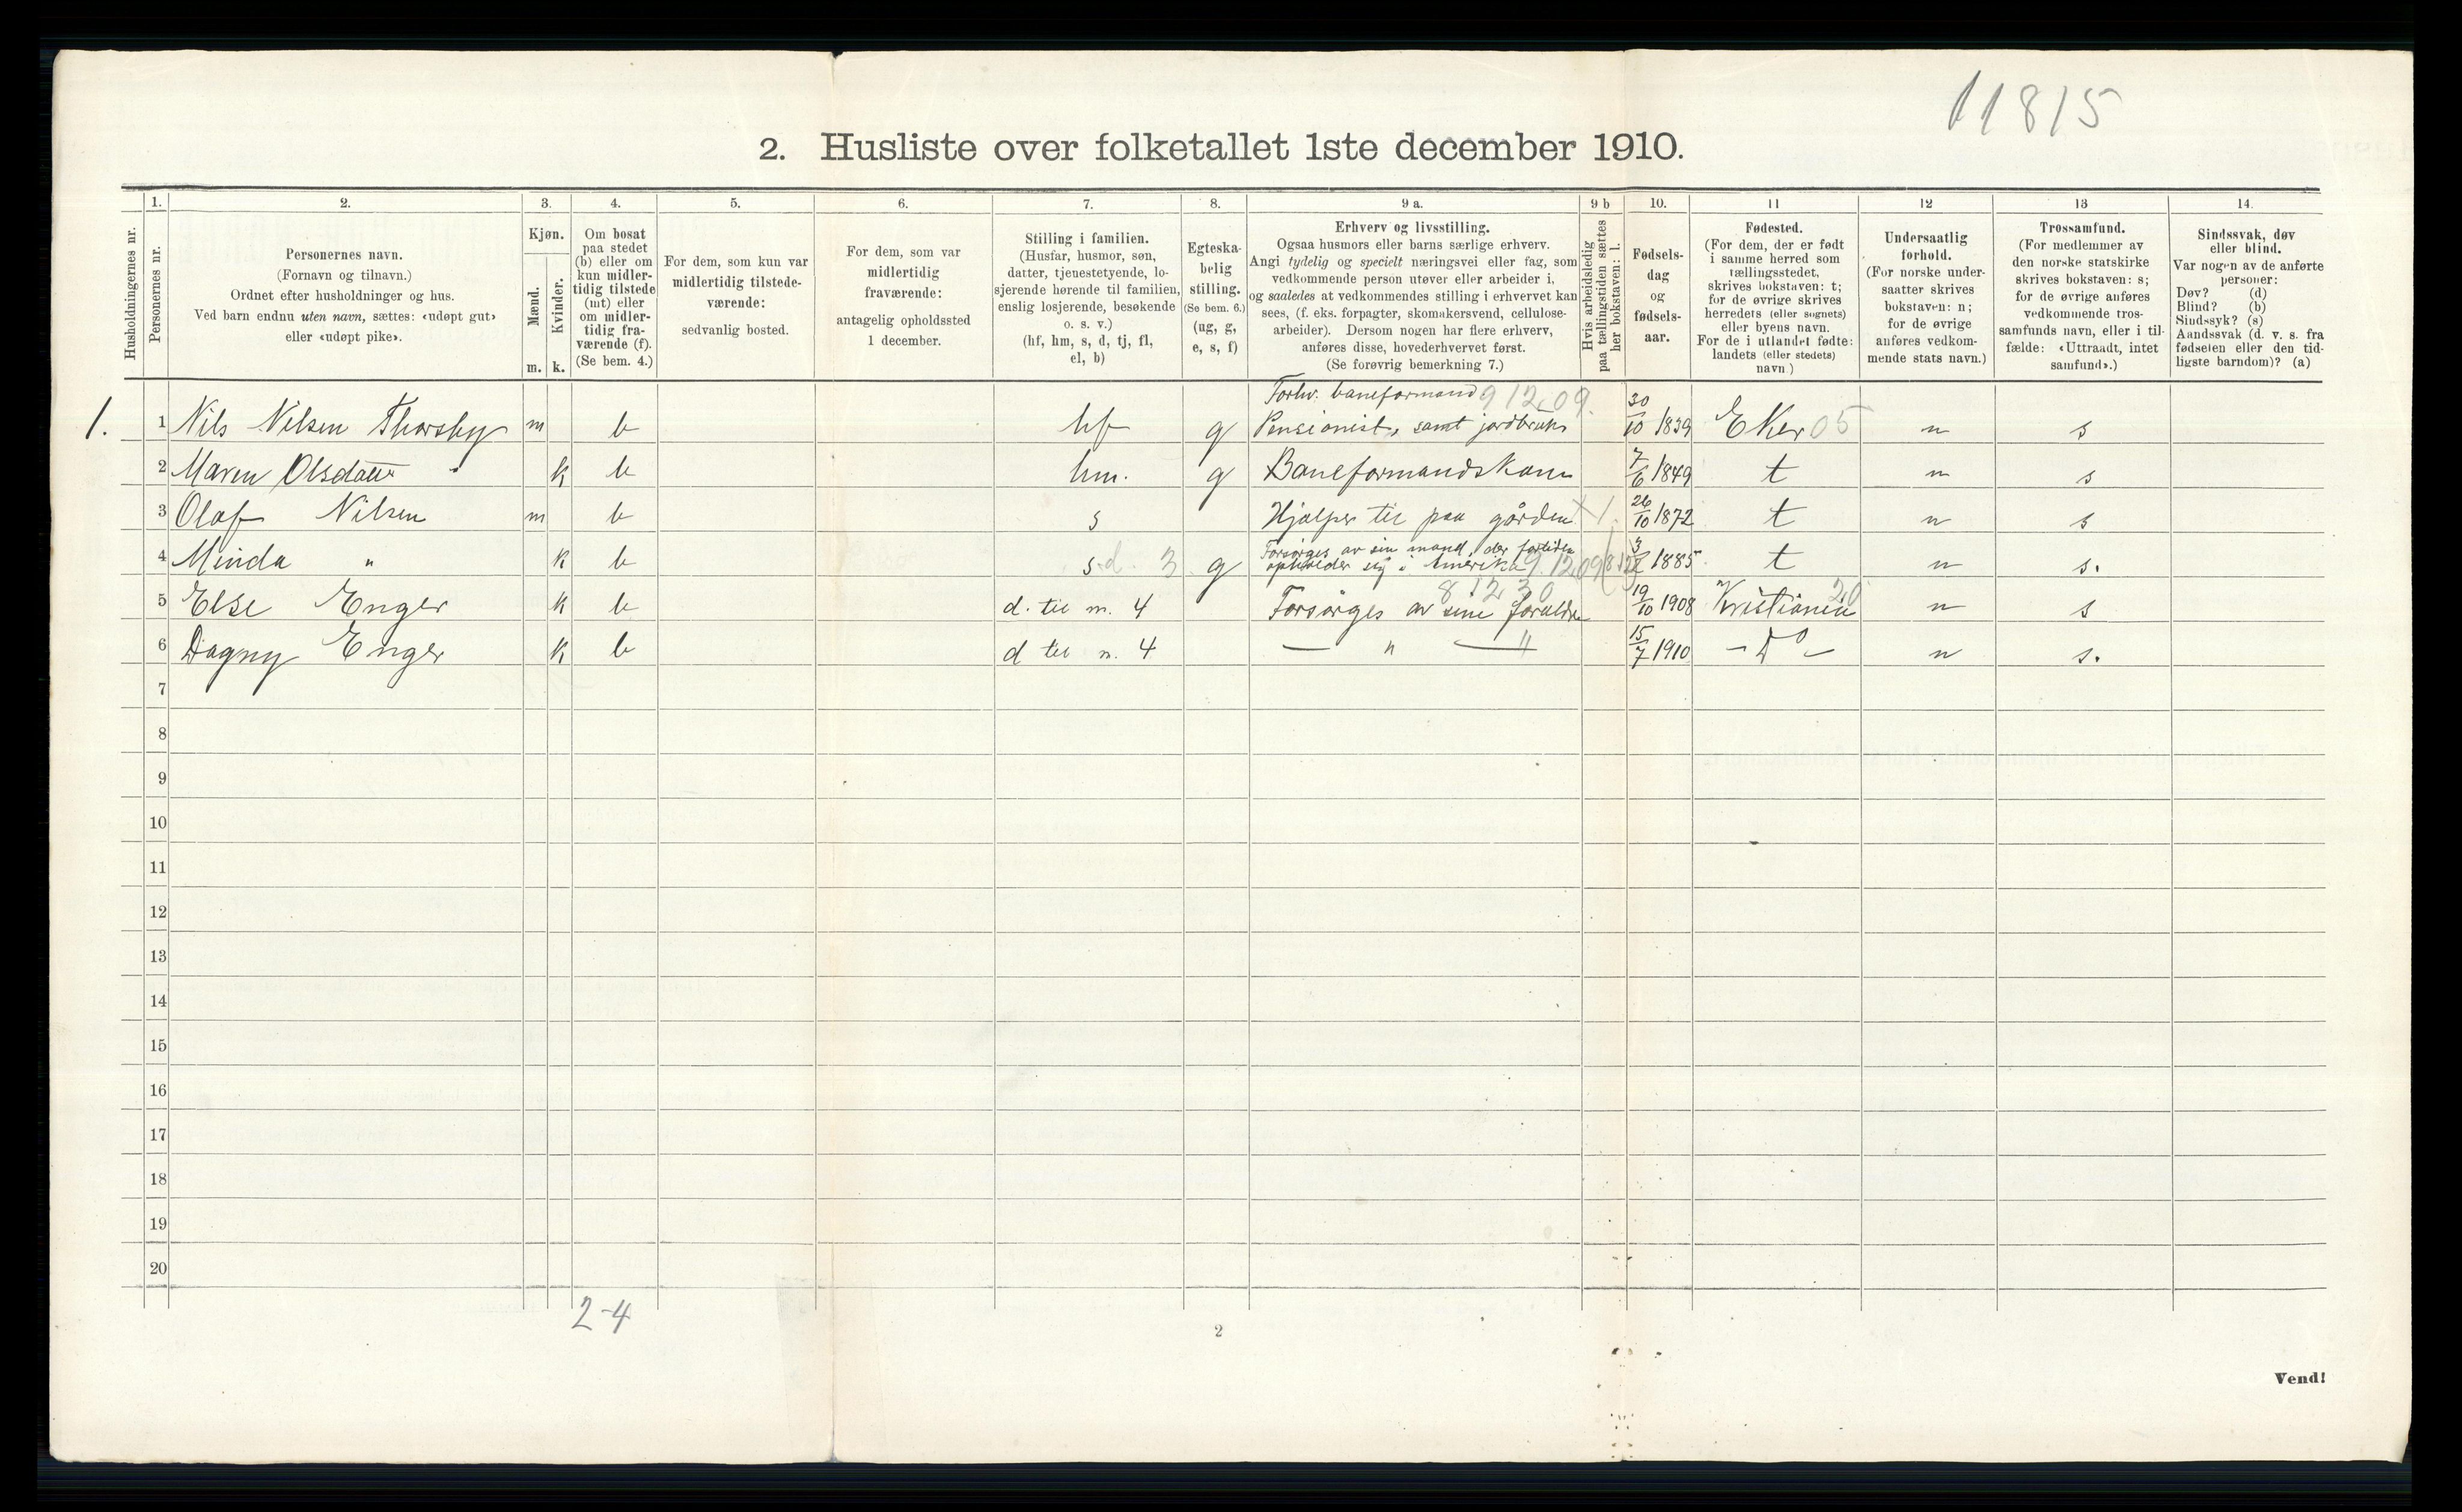 11815
2. Husliste over folketallet 1ste december 1910.
Husholdningernes nr.
1.
Personernes nr.
2.
Personernes navn.
(Fornavn og tilnavn.)
Ordnet efter husholdninger og hus.
Ved barn endnu uten navn, sættes: «udøpt gut»
eller «udøpt pike».
3.
Kjøn.
Mænd.
Kvinder.
m. k.
4.
Om bosat
paa stedet
(b) eller om
kun midler-
tidig tilstede
(mt) eller
om midler-
tidig fra-
værende (f).
(Se bem. 4.)
5.
For dem, som kun var
midlertidig tilstede-
værende:
sedvanlig bosted.
6.
For dem, som var
midlertidig
fraværende:
antagelig opholdssted
1 december.
7.
Stilling i familien.
(Husfar, husmor, søn,
datter, tjenestetyende, lo-
sjerende hørende til familien,
enslig losjerende, besøkende
o. s. v.)
(hf, hm, s, d, tj, fl,
el, b)
8.
Egteska-
belig
stilling.
(Se bem. 6.)
(ug, g,
e, s, f)
9 a.
Erhverv og livsstilling.
Ogsaa husmors eller barns særlige erhverv.
Angi tydelig og specielt næringsvei eller fag, som
vedkommende person utøver eller arbeider i,
og saaledes at vedkommendes stilling i erhvervet kan
sees, (f. eks. forpagter, skomakersvend, cellulose-
arbeider). Dersom nogen har flere erhverv,
anføres disse, hovederhvervet først.
(Se forøvrig bemerkning 7.)
9 b
Hvis arbeidsledig
paa tællingstiden sættes
her bokstaven: l.
10.
Fødsels-
dag
og
fødsels-
aar.
11
Fødested.
(For dem, der er født
i samme herred som
tællingsstedet,
skrives bokstaven: t;
for de øvrige skrives
herredets (eller sognets)
eller byens navn.
For de i utlandet fødte:
landets (eller stedets)
navn.)
12
Undersaatlig
forhold.
(For norske under-
saatter skrives
bokstaven: n;
for de øvrige
anføres vedkom-
mende stats navn.)
13
Trossamfund.
(For medlemmer av
den norske statskirke
skrives bokstaven: s;
for de øvrige anføres
vedkommende tros-
samfunds navn, eller i til-
fælde: «Uttraadt, intet
samfund».)
14.
Sindssvak, døv
eller blind.
Var nogen av de anførte
personer:
Døv? (d)
Blind? (b)
Sindssyk? (s)
Aandssvak (d. v. s. fra
fødselen eller den tid-
ligste barndom)? (a)
Forhv. baneformand 9 12.09.
1. 1 Nils Nilsen Thorsby m b hf g Pensionist, samt jordbruk 30/10 1839 Eker 05 n s
2 Maren Olsdatter k b hm. g Baneformandskone 7/6 1849 t n s
3 Olaf Nilsen m b s Hjælper til paa gården 26/10 1872 t n s
Forsørges av sin mand, der fortiden
4 Minda " k b s. d. 3 g opholder sig i Amerika 9.1209 3/ 1885 t n s.
8 12 30
5 Else Enger k b d. til m. 4 Forsørges av sine forældre 19/10 1908 Kristiania 20 n s
6 Dagny Enger k b d til n. 4 — " — " 15/7 1910 - Do - n s.
7
8
9
10
11
12
13
14
15
16
17
18
19
20
2-4
2
Vend!